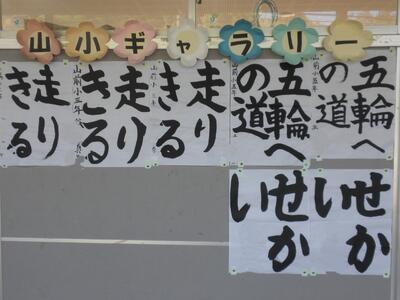 山小ギャラリー
五輪へ
の道
山前小五年
五輪へ
の道
山前小五年
走り
きる
走り
きる
山前小三年
走り
きる
せか
い
せか
い